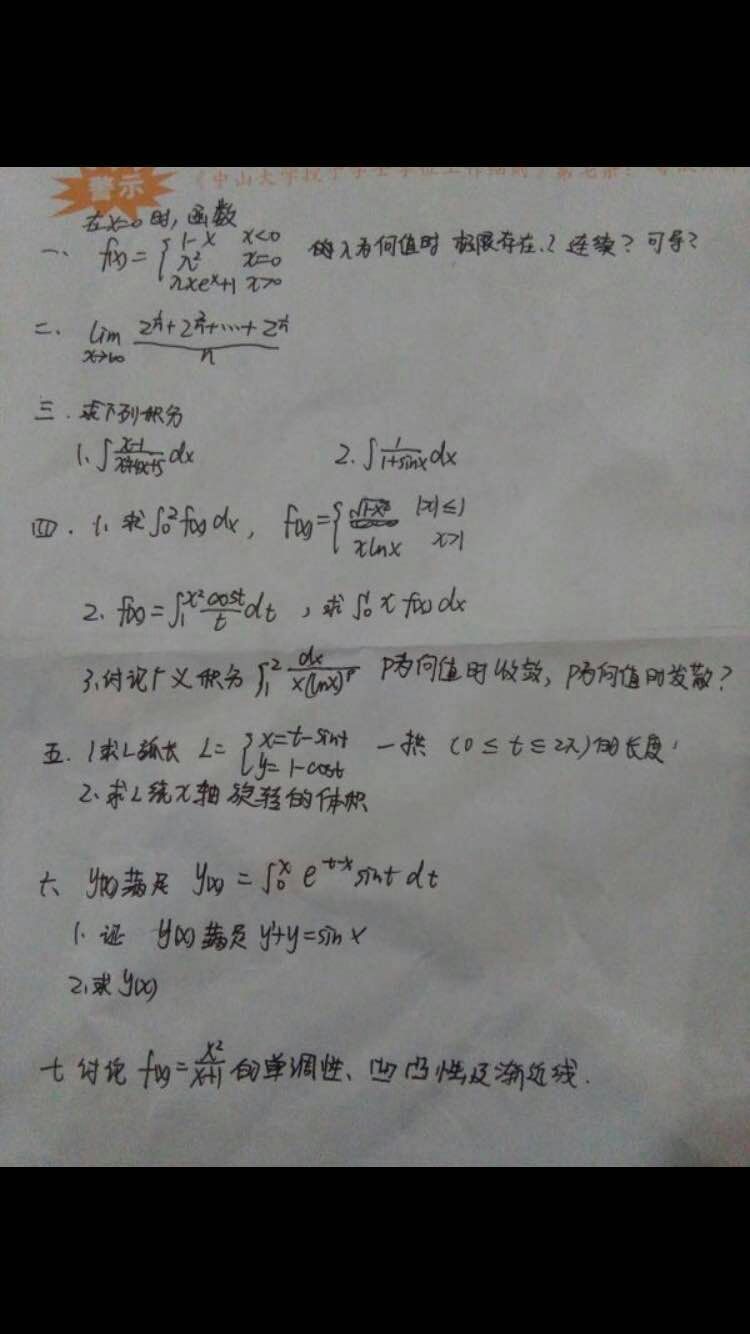 警示 《中山大学授予学士学位工作细则》第七条:
在x=0时,函数
一、 f(x)= { 1-x x<0
λ² x=0
λxeˣ+1 x>0 的λ为何值时 极限存在?连续?可导?
二、 lim x→∞ (2^(1/n)+2^(2/n)+…+2^(n/n))/n
三.求下列积分
1.∫(x-1)/(x²+4x+5)dx 2.∫1/(1+sinx)dx
四.1.求∫₀²f(x)dx, f(x)= { √(1-x²) |x|≤1
xlnx x>1
2.f(x)=∫₁^(x²) cost/t dt,求∫₀¹xf(x)dx
3.讨论广义积分∫₁² dx/(x(lnx)^p) P为何值时收敛,P为何值时发散?
五.1求L弧长 L= { x=t-sint
y=1-cost 一拱(0≤t≤2π)的长度
2.求L绕x轴旋转的体积
六 y(x)满足 y(x)=∫₀ˣ e^(t-x) sint dt
1.证 y(x)满足y'+y=sinx
2.求y(x)
七 讨论 f(x)=x²/(x+1)的单调性、凹凸性及渐近线.